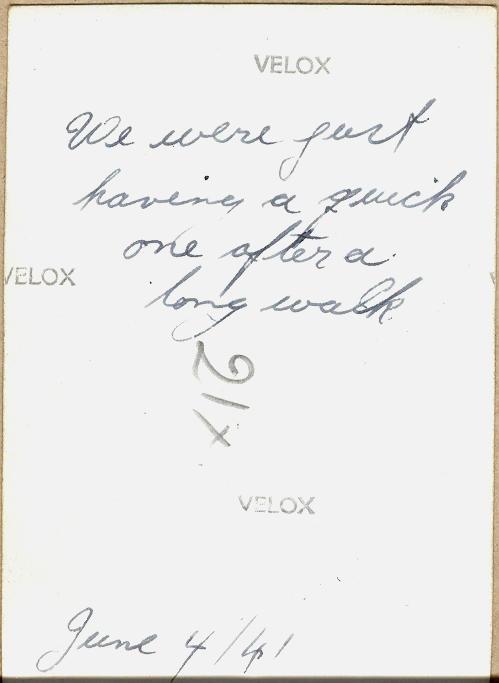 VELOX
We were just
having a quick
one after a
VELOX
long walk
21x
VELOX
June 4/41